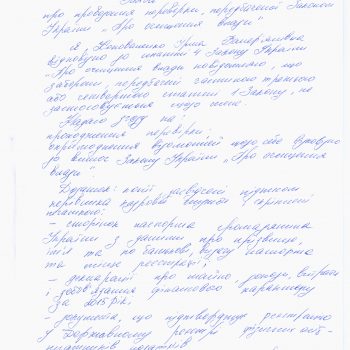 про проведення перевірки, передбаченої Законом
України „Про очищення влади"
Я, Коновалько Ірина Валеріївна
відповідно до статті 4 Закону України
„Про очищення влади" повідомляю, що
заборони, передбачені частиною третьою
або четвертою статті 1 Закону, не
застосовуються щодо мене.
Надаю згоду на:
проходження перевірки;
оприлюднення відомостей щодо себе відповідно
до вимог Закону України „Про очищення
влади".
Додаток: копії, засвідчені підписом
керівника кадрової служби і скріплені
печаткою:
– сторінок паспорта громадянина
України з даними про прізвище,
ім'я та по батькові, видачу паспорта
та місце реєстрації;
– декларації про майно, доходи, витрати
і зобов'язання фінансового характеру
за 2015 рік.
– документа, що підтверджує реєстрацію
у Державному реєстрі фізичних осіб -
платників податків